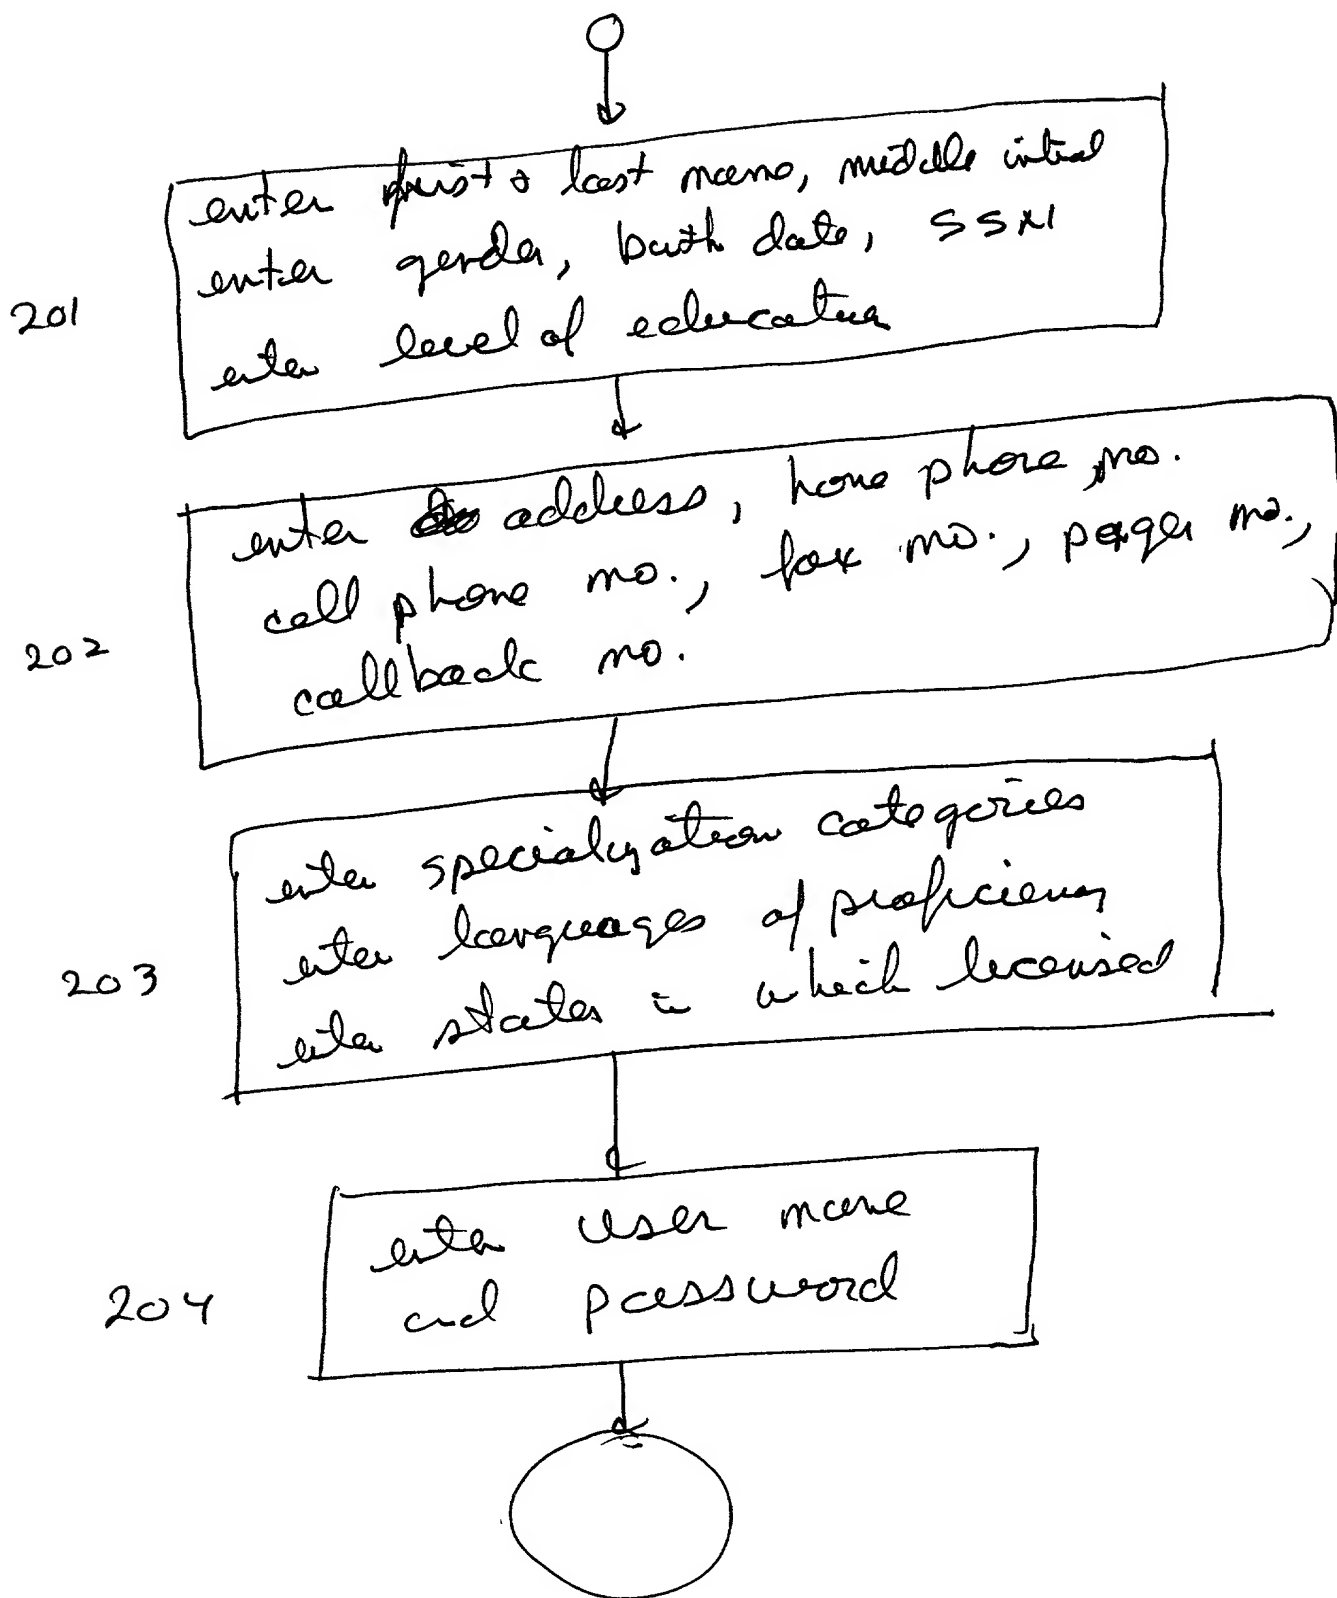 201
enter first & last name, middle initial
enter gender, birth date, SSN
enter level of education
202
enter address, home phone no.
cell phone no., fax no., pager no.,
callback no.
203
enter specialization categories
enter languages of proficiency
enter states in which licensed
204
enter user name
and password